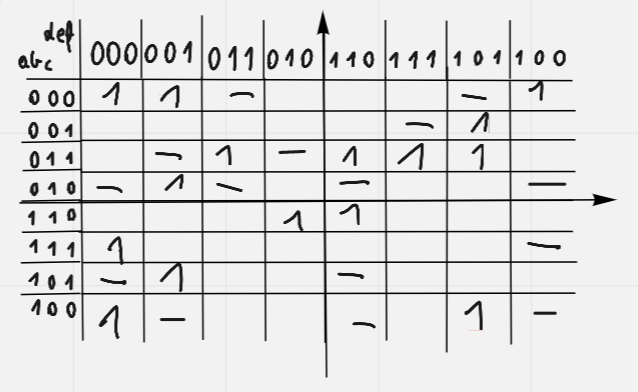 def
abc 000 001 011 010 110 111 101 100
000 1 1 — — 1
001 — 1
011 — 1 — 1 1 1
010 — 1 — — —
110 1 1
111 1 —
101 — 1 —
100 1 — — 1 —